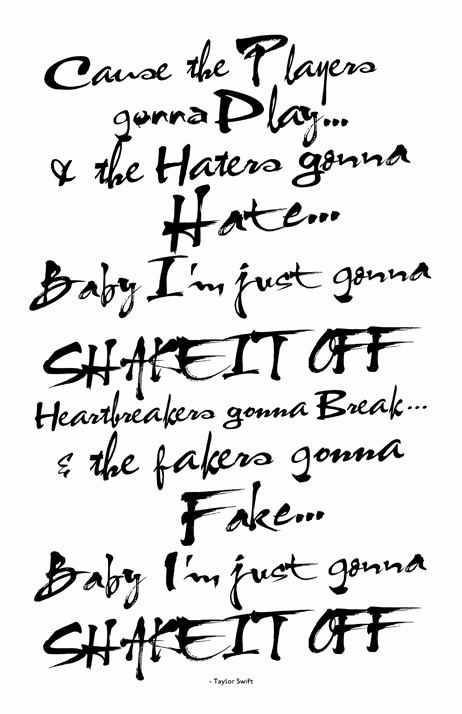 Cause the Players
gonna Play...
& the Haters gonna
Hate...
Baby I'm just gonna
SHAKE IT OFF
Heartbreakers gonna Break...
& the fakers gonna
Fake...
Baby I'm just gonna
SHAKE IT OFF
- Taylor Swift